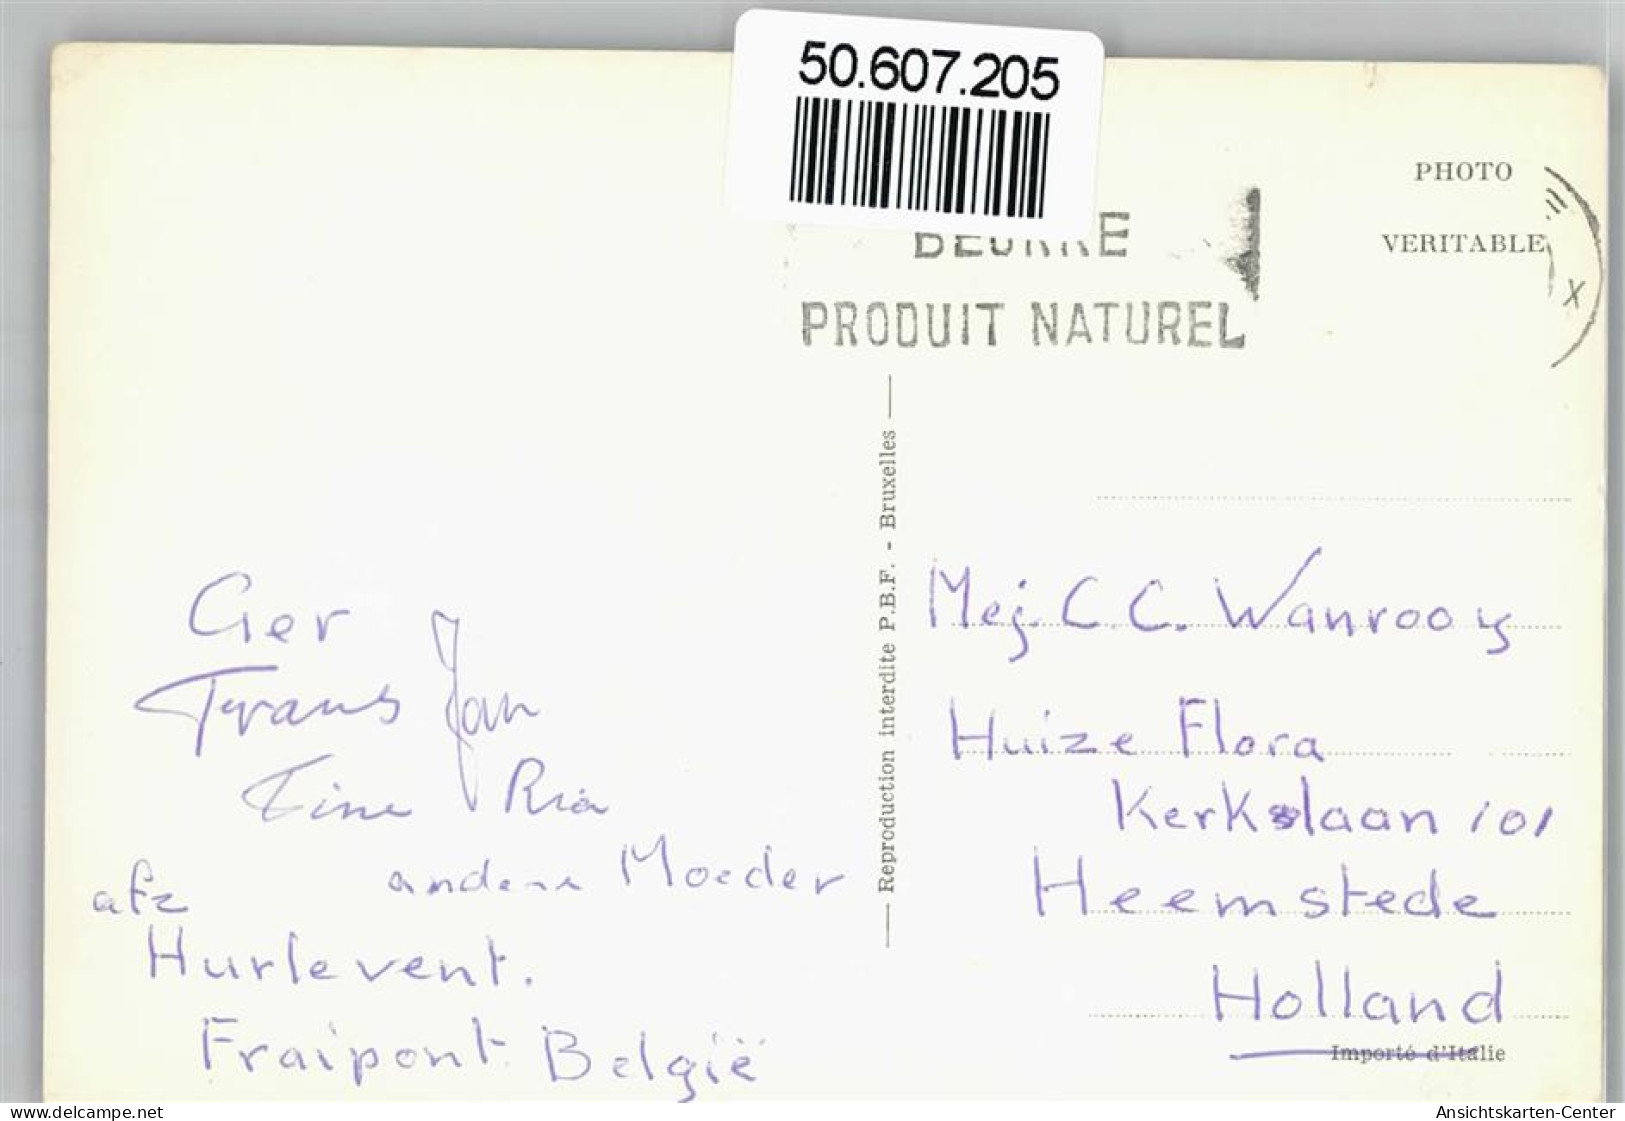 50.607.205
BEURRE
PRODUIT NATUREL
PHOTO
VERITABLE
X
Reproduction interdite P.B.F. - Bruxelles
Ger
Frans Jan
Tine Ria
andere Moeder
afz
Hurlevent.
Fraipont België
Mej. C. C. Wanrooy
Huize Flora
Kerkslaan 101
Heemstede
Holland
Importé d'Italie
delcampe.net
Ansichtskarten-Center